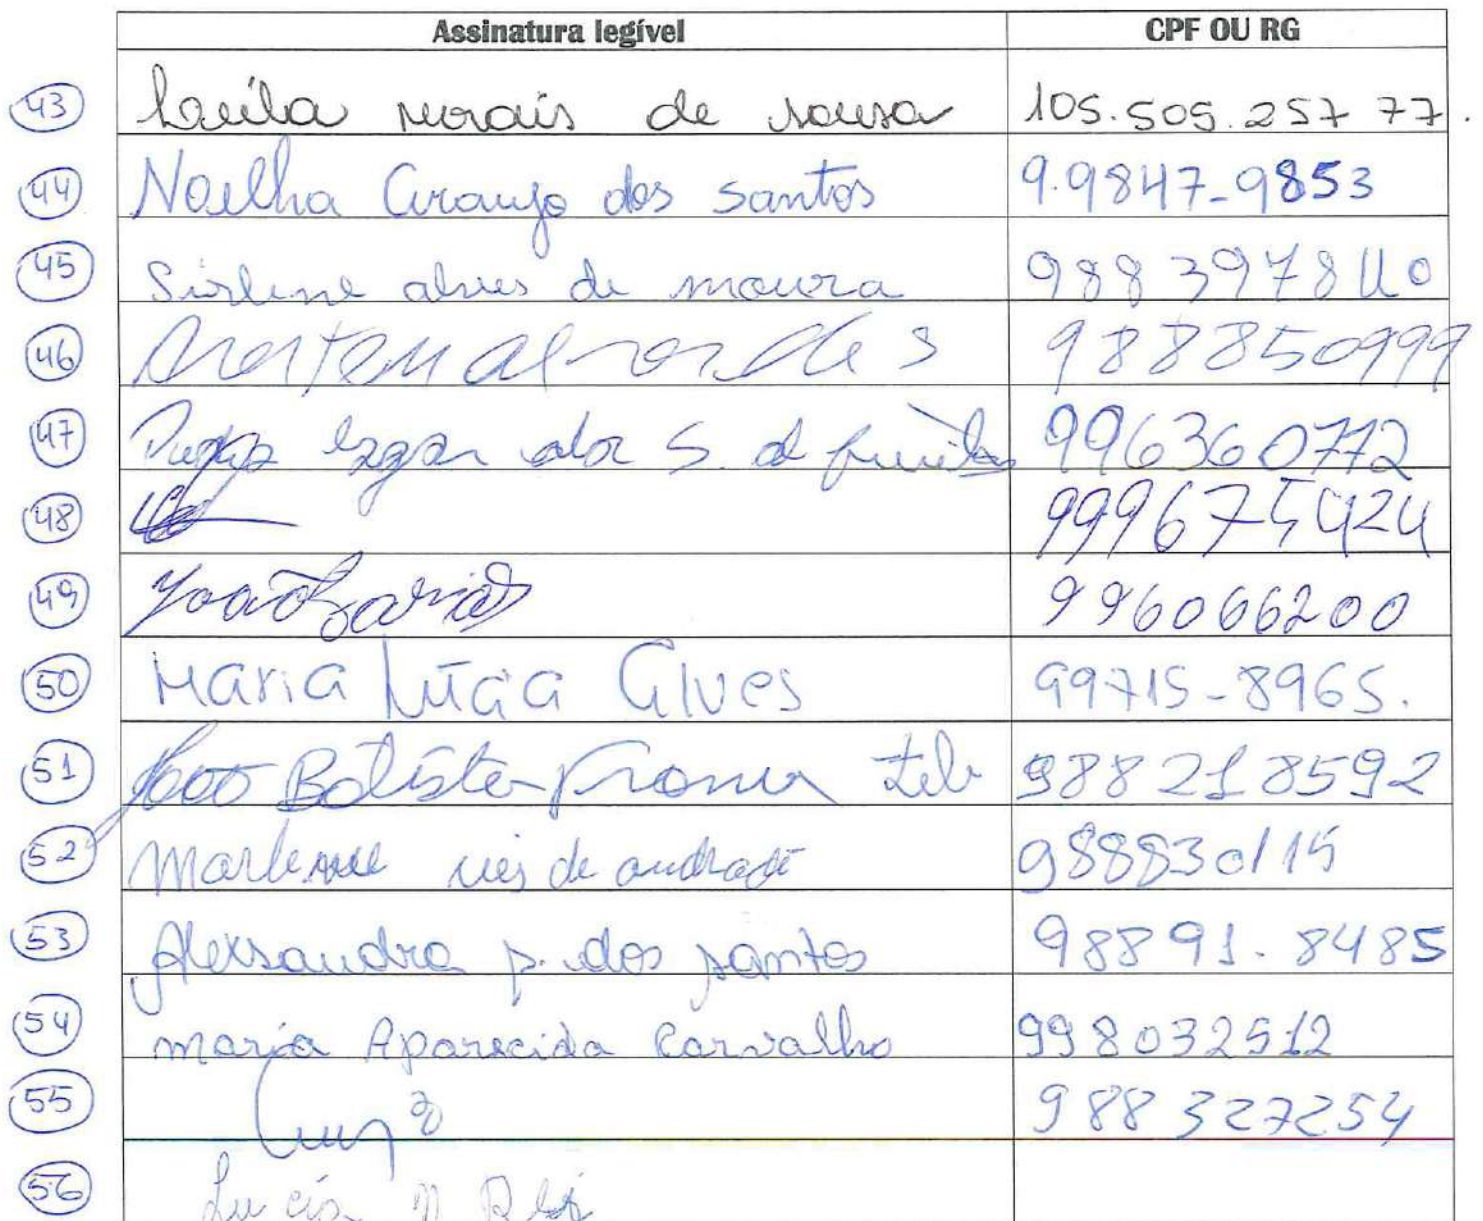 Assinatura legível CPF OU RG
43 Leila morais de sousa 105.505.257 77.
44 Noelha Araujo dos Santos 9.9847-9853
45 Sirlene alves de moura 988397840
46 988850999
47 S. d 996360772
48 999675424
49 João Farias 996066200
50 Maria Lúcia Alves 99715-8965.
51 João Batista 988218592
52 Marlene de andrade 988830115
53 Alexsandra p. dos santos 98891-8485
54 maria Aparecida Carvalho 998032512
55 988327254
56 Lucia